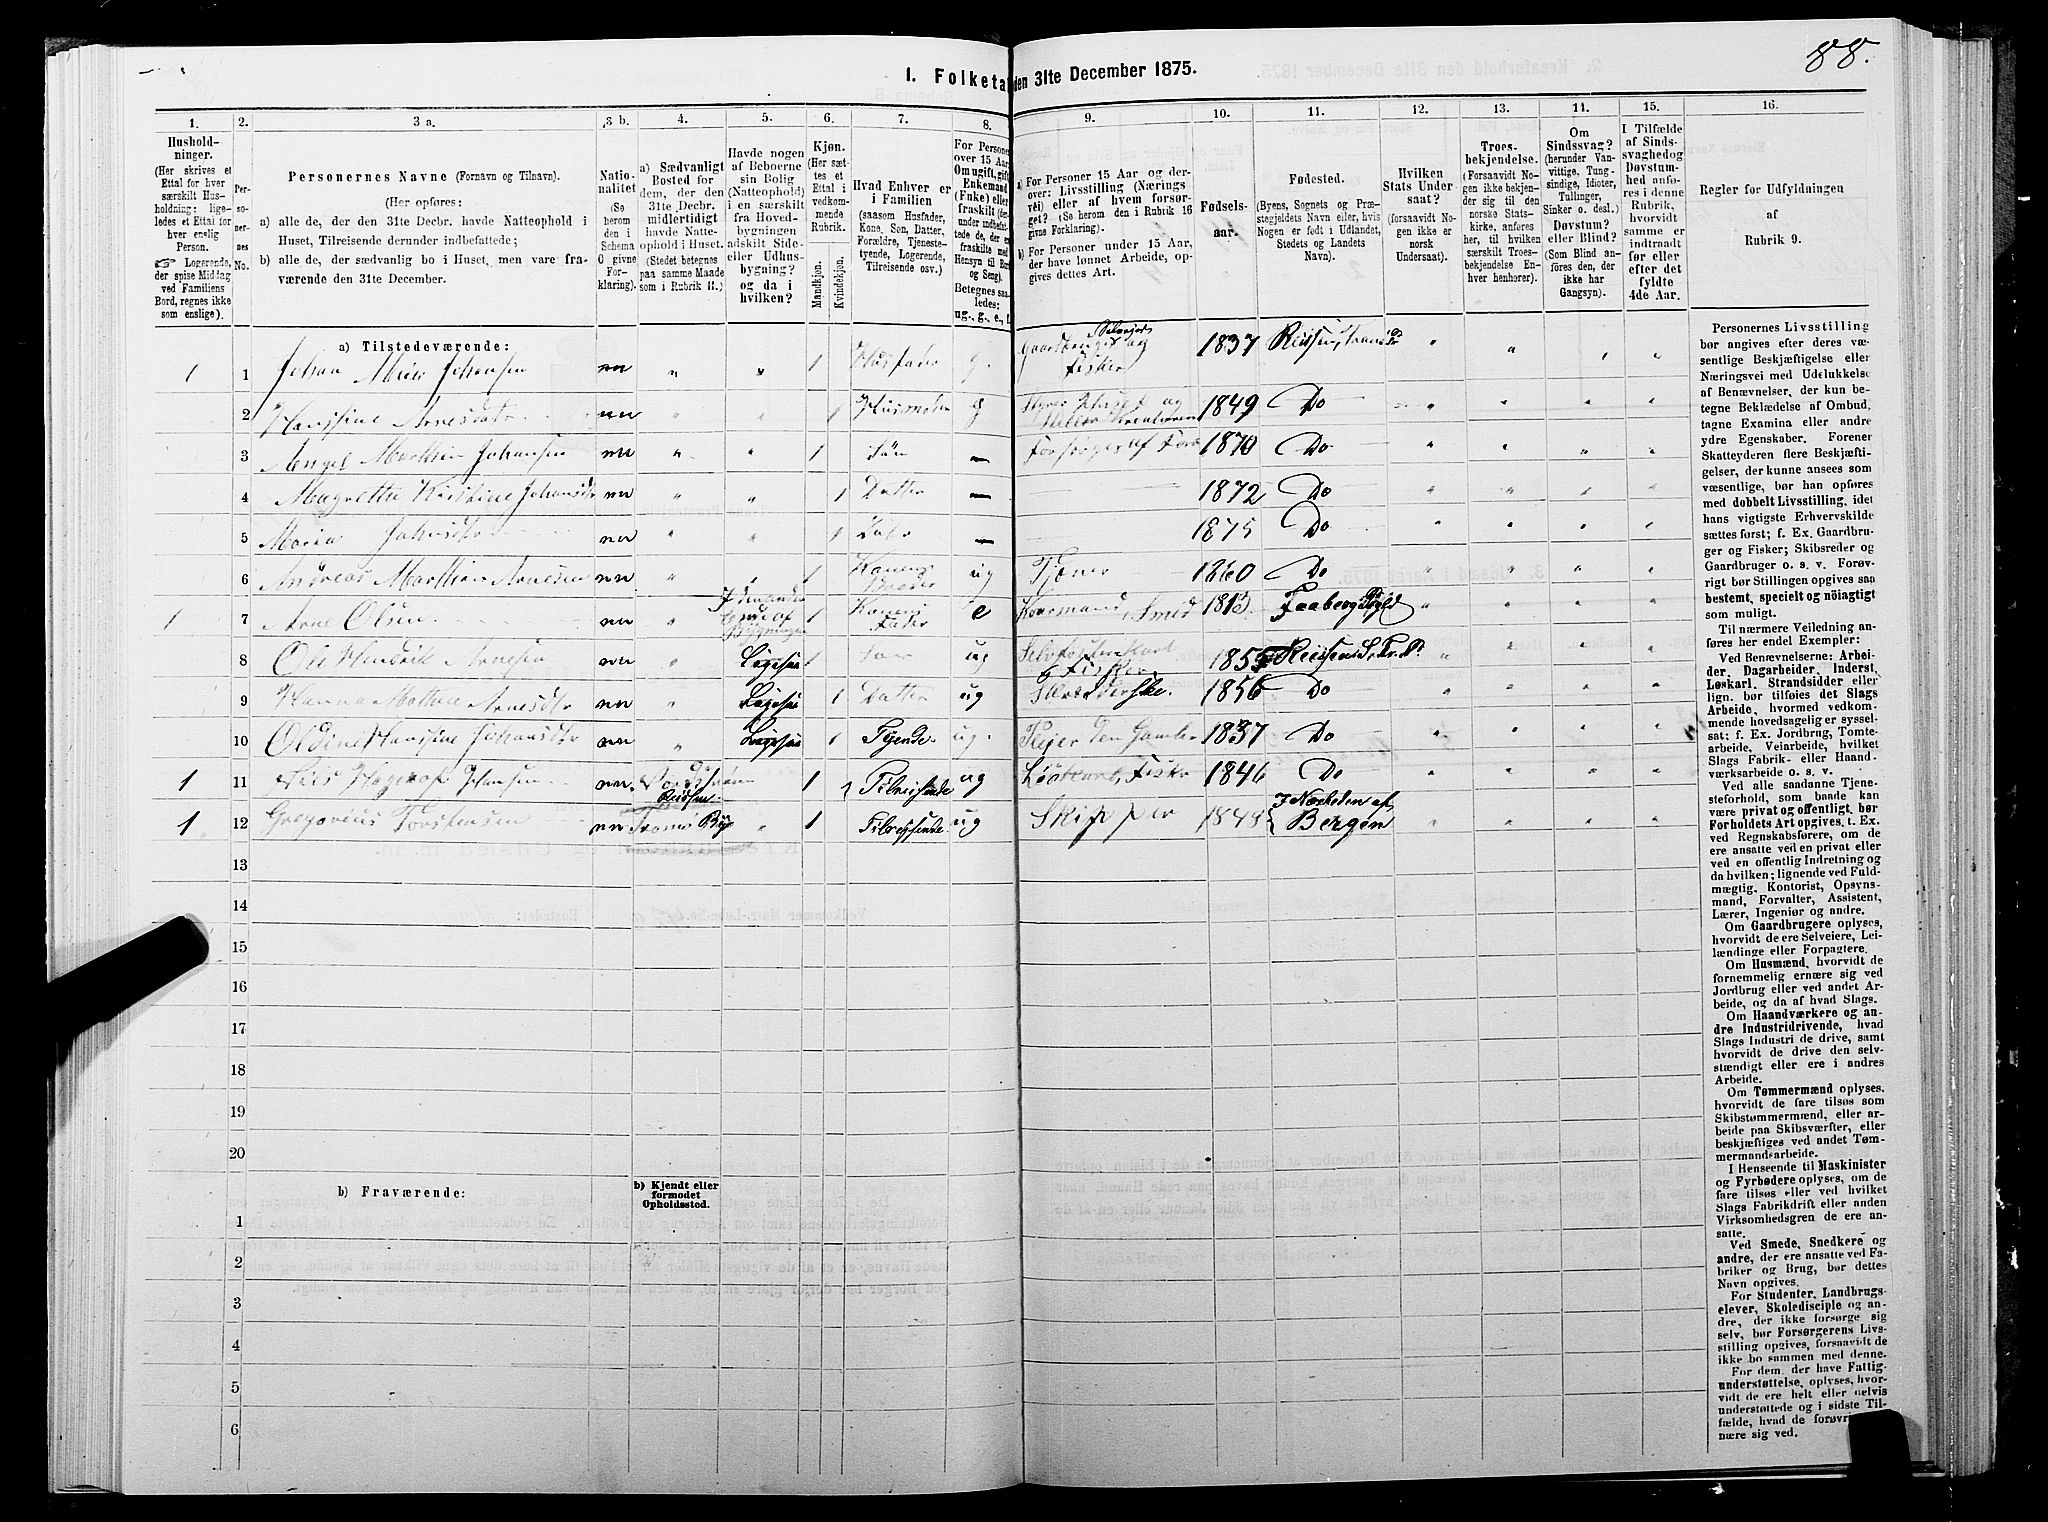 88.
1. Folketal den 31te December 1875.
1. 2. 3 a. 3 b. 4. 5. 6. 7. 8. 9. 10. 11. 12. 13. 14. 15. 16.
Hushold-
ninger.
(Her skrives et
Ettal for hver
særskilt Hus-
holdning; lige-
ledes et Ettal for
hver enslig
Person.
☞ Logerende,
der spise Middag
ved Familiens
Bord, regnes ikke
som enslige).
Per-
so-
ner-
nes
No.
Personernes Navne (Fornavn og Tilnavn).
(Her opføres:
a) alle de, der den 31te Decbr. havde Natteophold i
Huset, Tilreisende derunder indbefattede;
b) alle de, der sædvanlig bo i Huset, men vare fra-
værende den 31te December.
Natio-
nalitet
(Se
herom
den i
Schema
C givne
For-
klaring).
a) Sædvanligt
Bosted for
dem, der den
31te Decbr.
midlertidigt
havde Natte-
ophold i Huset.
(Stedet betegnes
paa samme Maade
som i Rubrik 11.)
Havde nogen
af Beboerne
sin Bolig
(Natteophold)
i en særskilt
fra Hoved-
bygningen
adskilt Side-
eller Udhus-
bygning?
og da i
hvilken?
Kjøn.
(Her sæt-
tes et
Ettal i
vedkom-
mende
Rubrik.
Mandkjøn.
Kvindekjøn.
Hvad Enhver er
i Familien
(saasom Husfader,
Kone, Søn, Datter,
Forældre, Tjeneste-
tyende, Logerende,
Tilreisende osv.)
For Personer
over 15 Aar:
Om ugift, gift,
Enkemand
(Enke) eller
fraskilt
Betegnes saa-
ledes:
ug., g., e., f.
a) For Personer 15 Aar og der-
over: Livsstilling (Nærings-
vei) eller af hvem forsør-
get? (Se herom den i Rubrik 16
givne Forklaring).
b) For Personer under 15 Aar,
der have lønnet Arbeide, op-
gives dettes Art.
Fødsels-
aar.
Fødested.
(Byens, Sognets og Præ-
stegjeldets Navn eller, hvis
Nogen er født i Udlandet,
Stedets og Landets
Navn).
Hvilken
Stats Under-
saat?
(forsaavidt No-
gen ikke er
norsk
Undersaat).
Troes-
bekjendelse.
(Forsaavidt No-
gen ikke bekjen-
der sig til den
norske Stats-
kirke, anføres
her, til hvilken
særskilt Troes-
bekjendelse En-
hver henhører).
Om
Sindssvag?
(herunder Van-
vittige, Tung-
sindige, Idioter,
Tullinger,
Sinker o. desl.)
Døvstum?
eller Blind?
(Som Blind an-
føres den, der
ikke har
Gangsyn).
I Tilfælde
af Sinds-
svaghed og
Døvstum-
hed anfø-
res i denne
Rubrik,
hvorvidt
samme er
indtraadt
før eller
efter det
fyldte
4de Aar.
Regler for Udfyldningen
af
Rubrik 9.
a) Tilstedeværende:
1 1 Johan Johansen nn „ „ 1 Husfader g. Gaardbruger Selveier og Fisker 1837 Reissen, Transø Pr
2 Hanssine Arnesdtr nn „ „ 1 Husmoder g Styrer Huset og Steller Kreaturene 1849 Do
3 Johansen nn „ „ 1 Søn – Forsørges af Fora 1870 Do
4 Kirstine Johansdtr nn „ „ 1 Datter – 1872 Do
5 Maria Johansdtr nn „ 1 Dater – 1875 Do
6 Andreas Arnesen nn „ „ 1 Konens Broder ug Tjener 1860 Do
1 7 Arne Olsen nn „ 1 Konens Fader e Smed 1813 Faaberg Pgld
8 Ole Hendrik Arnesen nn „ Ligesaa 1 Søn ug Fisker 1855 Reissen S. Tr. P.
9 Hanna Arnesdtr nn „ Ligesaa 1 Datter ug 1856 Do
10 Oldine Hanssine Johansdtr nn „ Ligesaa 1 Tyende ug. Pleier den Gamle 1837 Do
1 11 Nils Johansen nn 1 Tilreisende ug Løskarl, Fisker 1846 Do
1 12 Gregorius Torstensen nn Tromsø By „ 1 Tilreisende ug Skipper 1848 I Nærheden af Bergen
13
14
15
16
17
18
19
20
b) Fraværende:
b) Kjendt eller
formodet
Opholdssted.
1
2
3
4
5
6
Personernes Livsstilling
bør angives efter deres væ-
sentlige Beskjæftigelse eller
Næringsvei med Udelukkelse
af Benævnelser, der kun be-
tegne Beklædelse af Ombud,
tagne Examina eller andre
ydre Egenskaber. Forener
Skatteyderen flere Beskjæfti-
gelser, der kunne ansees som
væsentlige, bør han opføres
med dobbelt Livsstilling, idet
hans vigtigste Erhvervskilde
sættes først; f. Ex. Gaardbru-
ger og Fisker; Skibsreder og
Gaardbruger o. s. v. Forøv-
rigt bør Stillingen opgives saa
bestemt, specielt og nøiagtig
som muligt.
Til nærmere Veiledning an-
føres her endel Exempler:
Ved Benævnelserne: Arbei-
der, Dagarbeider, Inderst,
Løskarl, Strandsidder eller
lign. bør tilføies det Slags
Arbeide, hvormed vedkom-
mende hovedsagelig er syssel-
sat; f. Ex. Jordbrug, Tomte-
arbeide, Veiarbeide, hvilket
Slags Fabrik- eller Haand-
værksarbeide o. s. v.
Ved alle saadanne Tjene-
steforhold, som baade kan
være privat og offentlig, bør
Forholdets Art opgives, f. Ex.
ved Regnskabsførere, om de
ere ansatte ved en privat eller
ved en offentlig Indretning og
da hvilken; lignende ved Fuld-
mægtig, Kontorist, Opsyns-
mand, Forvalter, Assistent,
Lærer, Ingeniør og andre.
Om Gaardbrugere oplyses,
hvorvidt de ere Selveiere, Lei-
lændinge eller Forpagtere.
Om Husmænd, hvorvidt de
fornemmelig ernære sig ved
Jordbrug eller ved andet Ar-
beide, og da af hvad Slags.
Om Haandværkere og an-
dre Industridrivende, hvad
Slags Industri de drive, samt
hvorvidt de drive den selv-
stændigt eller ere i andres
Arbeide.
Om Tømmermænd oplyses,
hvorvidt de fare tilsøs som
Skibstømmermænd, eller ar-
beide paa Skibsværfter, eller
beskjæftiges ved andet Tøm-
mermandsarbeide.
I Henseende til Maskinister
og Fyrbødere oplyses, om de
fare tilsøs eller ved hvilket
Slags Fabrikdrift eller anden
Virksomhedsgren de ere an-
satte.
Ved Smede, Snedkere og
andre, der ere ansatte ved Fa-
briker og Brug, bør dettes
Navn opgives.
For Studenter, Landbrugs-
elever, Skoledisciple og an-
dre, der ikke forsørge sig
selv, bør Forsørgerens Livs-
stilling opgives, forsaavidt de
ikke bo sammen med denne.
For dem, der have Fattig-
understøttelse, oplyses, hvor-
vidt de ere helt eller delvis
understøttede og i sidste Til-
fælde, hvad de forøvrigt
nære sig ved.